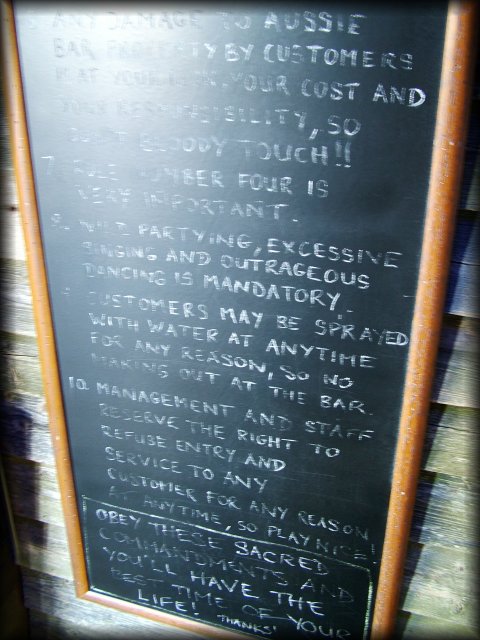 ANY DAMAGE TO AUSSIE
BAR PROPERTY BY CUSTOMERS
IS AT YOUR RISK, YOUR COST AND
YOUR RESPONSIBILITY, SO
DON'T BLOODY TOUCH!!
7. RULE NUMBER FOUR IS
VERY IMPORTANT.
8. WILD PARTYING, EXCESSIVE
SINGING AND OUTRAGEOUS
DANCING IS MANDATORY.
CUSTOMERS MAY BE SPRAYED
WITH WATER AT ANYTIME
FOR ANY REASON, SO NO
MAKING OUT AT THE BAR.
10. MANAGEMENT AND STAFF
RESERVE THE RIGHT TO
REFUSE ENTRY AND
SERVICE TO ANY
CUSTOMER FOR ANY REASON
AT ANYTIME, SO PLAY NICE
OBEY THESE SACRED
COMMANDMENTS AND
YOU'LL HAVE THE
BEST TIME OF YOUR
LIFE! THANKS!